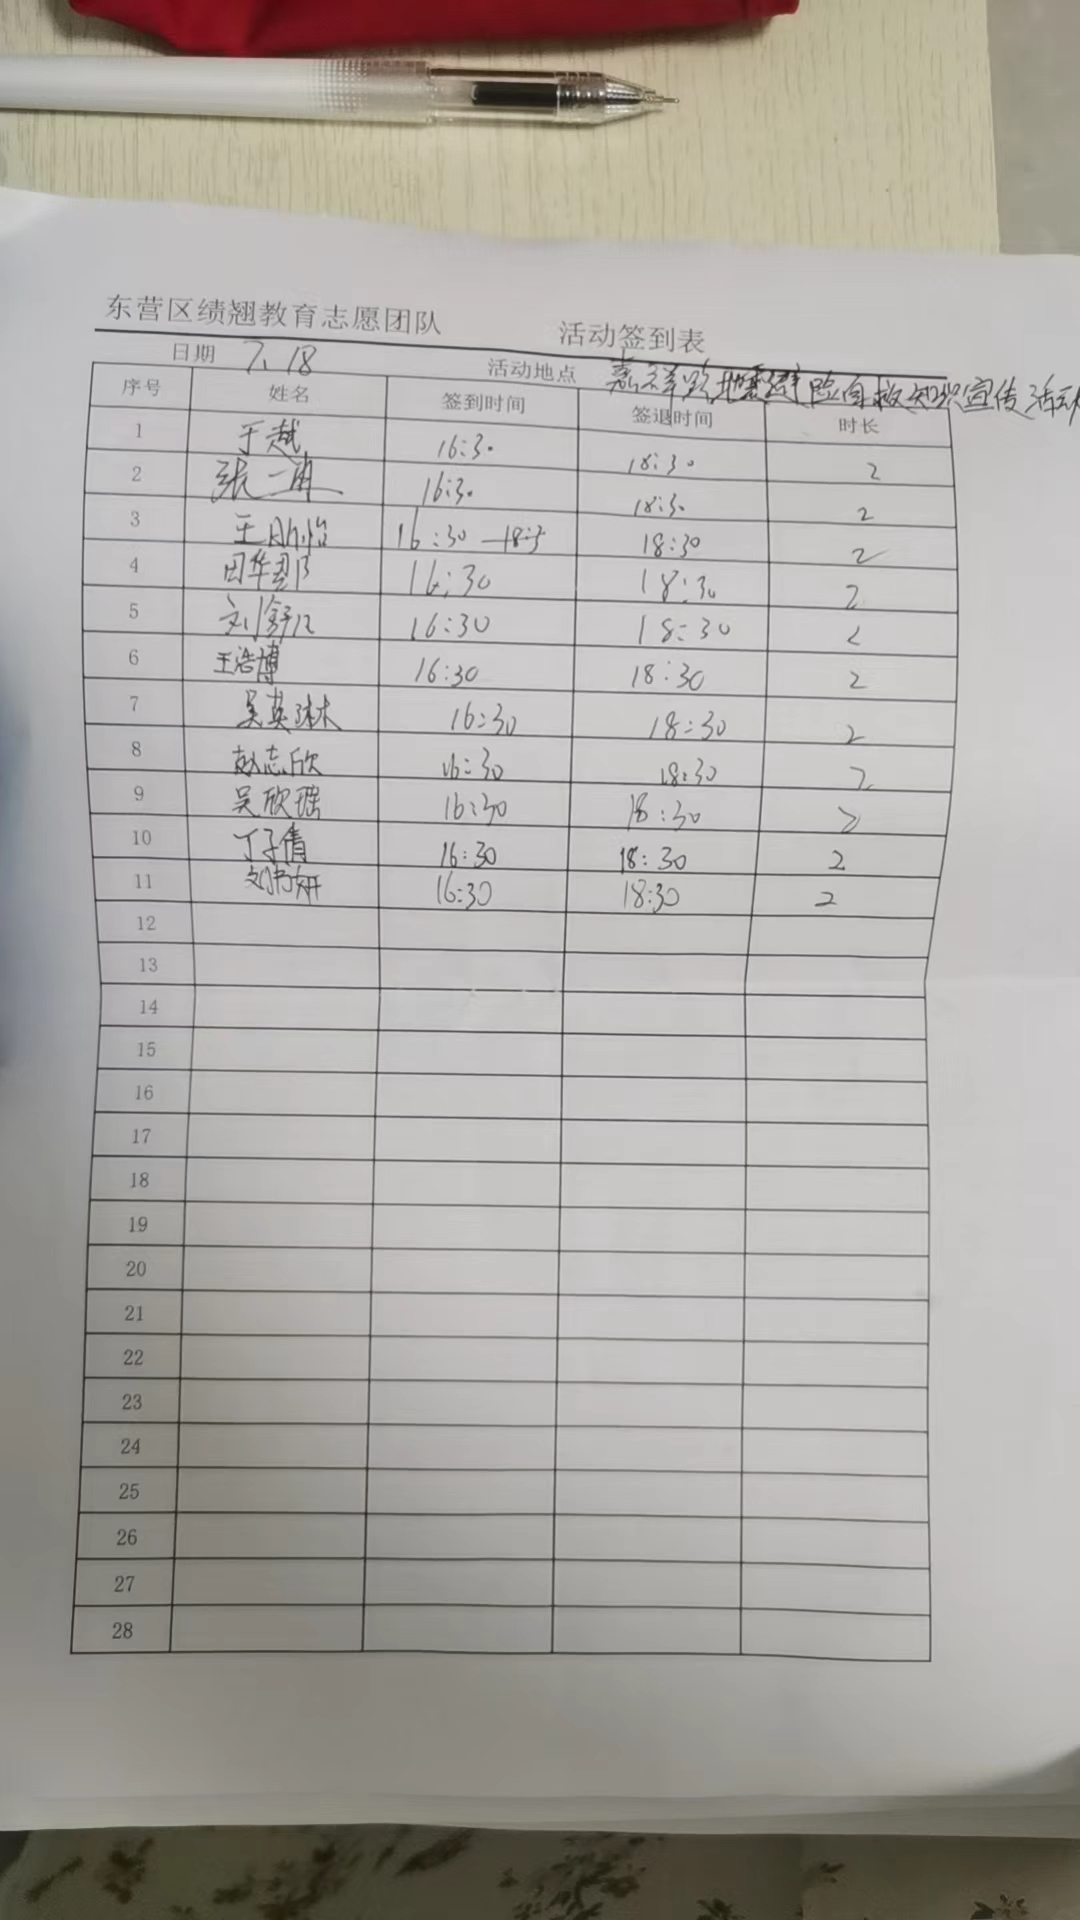 东营区绩翘教育志愿团队 活动签到表
日期 7.18 活动地点 嘉祥路地震避险自救知识宣传活动
序号 姓名 签到时间 签退时间 时长
1 于越 16:30 18:30 2
2 张一冉 16:30 18:30 2
3 王 怡 16:30 —18:3 18:30 2
4 田华 16:30 18:30 2
5 刘舒 16:30 18:30 2
6 王浩博 16:30 18:30 2
7 吴英琳 16:30 18:30 2
8 赵志欣 16:30 18:30 2
9 吴欣瑶 16:30 18:30 2
10 丁子倩 16:30 18:30 2
11 刘书妍 16:30 18:30 2
12
13
14
15
16
17
18
19
20
21
22
23
24
25
26
27
28